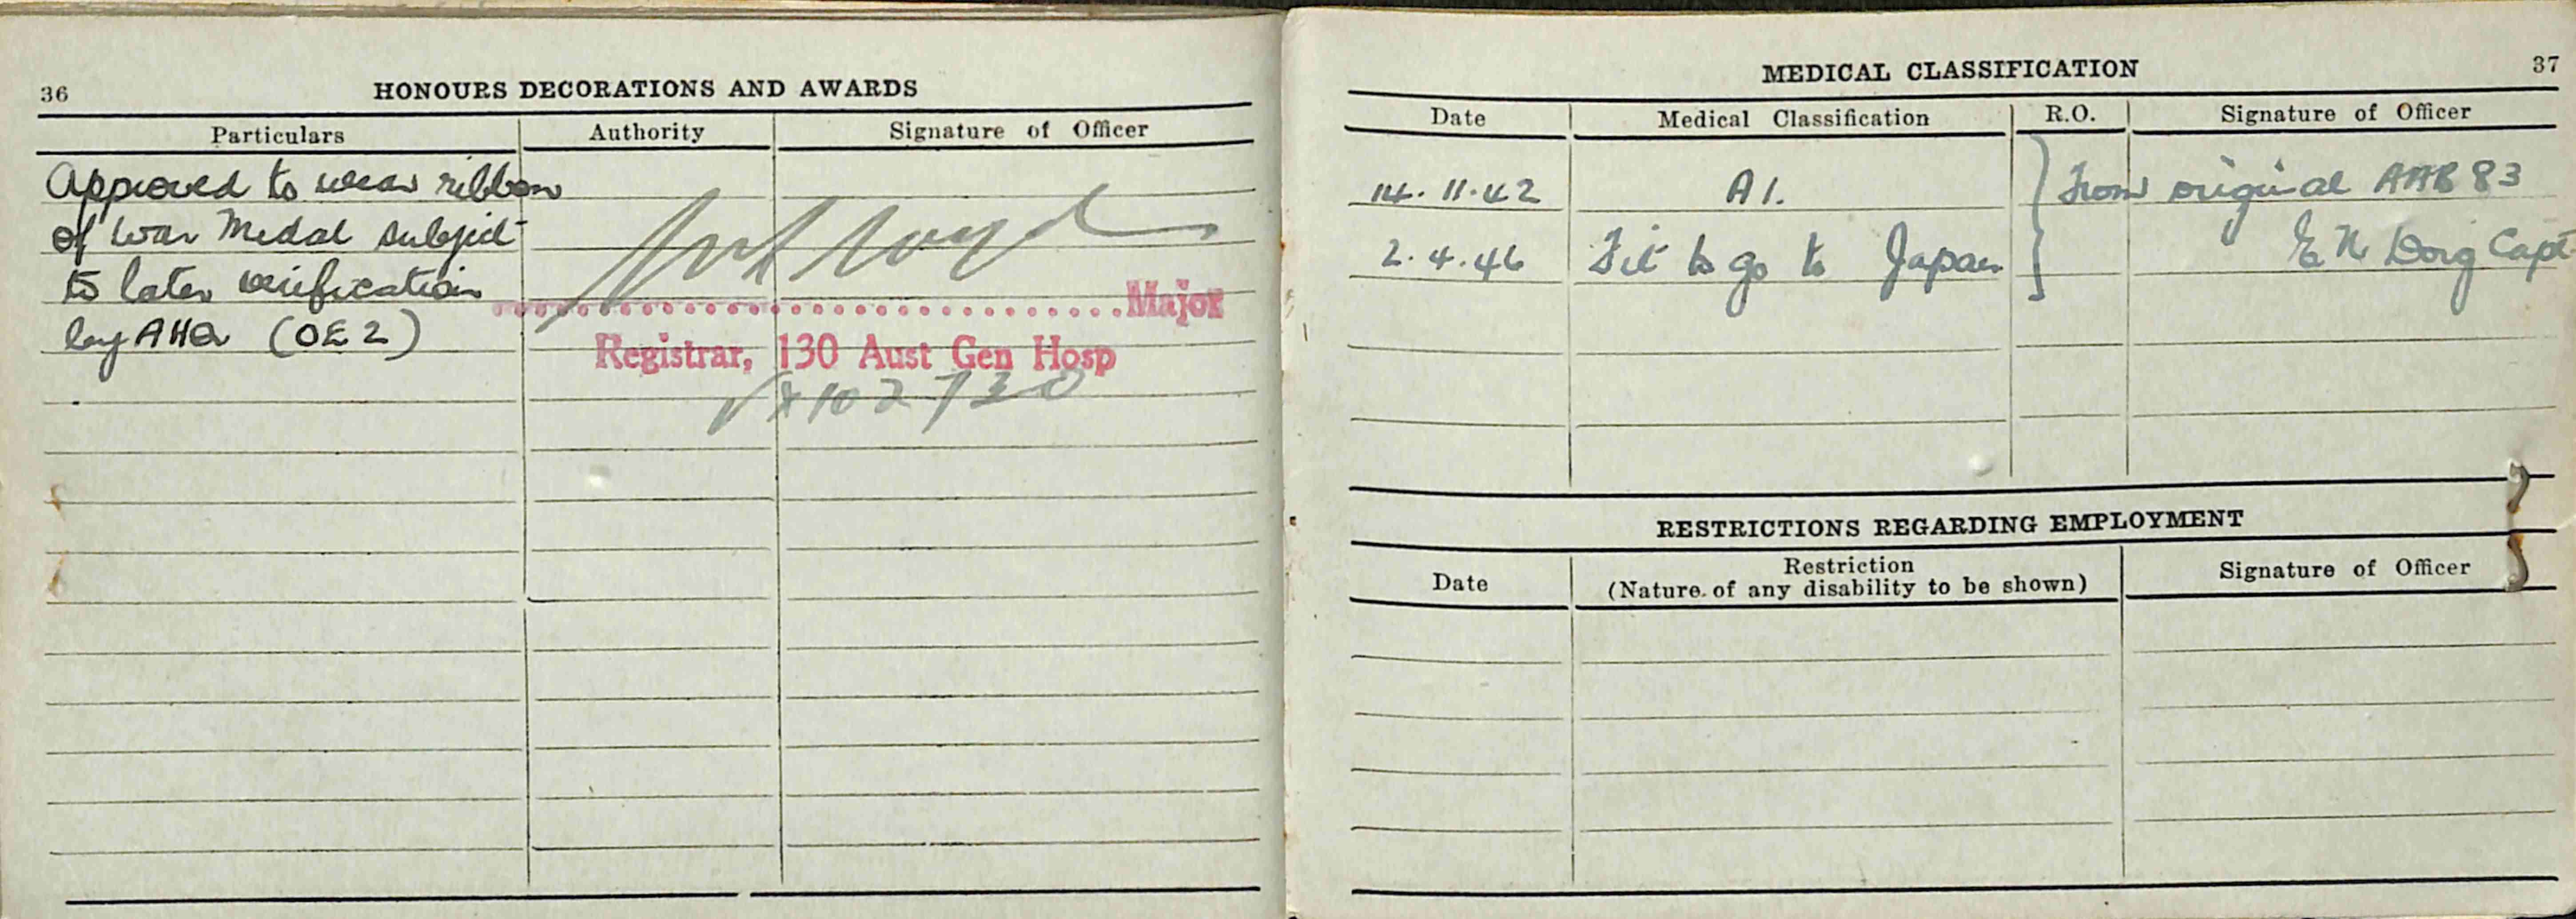 36
HONOURS DECORATIONS AND AWARDS
Particulars Authority Signature of Officer
Approved to wear ribbon
of War Medal subject
to later verification
by AHQ (OE2)
Major
Registrar, 130 Aust Gen Hosp
VX102730
37
MEDICAL CLASSIFICATION
Date Medical Classification R.O. Signature of Officer
14.11.42 A1. From original AAB 83
2.4.46 Fit to go to Japan E N Doig Capt
RESTRICTIONS REGARDING EMPLOYMENT
Date Restriction (Nature of any disability to be shown) Signature of Officer